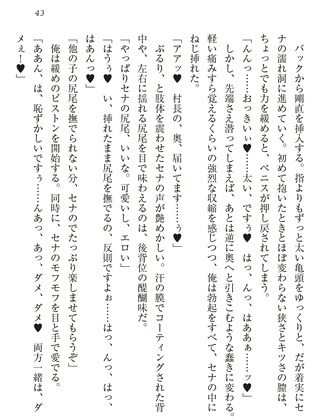 43
　バックから剛直を挿入する。指よりもずっと太い亀頭をゆっくりと、だが着実にセ
ナの濡れ洞に進めていく。初めて抱いたときとほぼ変わらない狭さとキツさの膣は、
ちょっとでも力を緩めると、ペニスが押し戻されてしまう。
「んんっ……おっきぃぃ♥……太い、ですぅ♥　はっ、んっ、はああぁ……ッ♥」
　しかし、先端さえ潜ってしまえば、あとは逆に奥へと引きこむような蠢きに変わる。
軽い痛みすら覚えるくらいの強烈な収縮を感じつつ、俺は勃起をすべて、セナの中に
ねじ挿れた。
「アアッ♥　村長の、奥、届いてます……ぅ♥」
　ぶるり、と肢体を震わせたセナの声が艶めかしい。汗の膜でコーティングされた背
中や、左右に揺れる尻尾を目で味わえるのは、後背位の醍醐味だ。
「やっぱりセナの尻尾、いいな。可愛いし、エロい」
「はうぅ♥　い、挿れたまま尻尾を撫でるの、反則ですよぉ……はっ、んっ、はっ、
はあんっ♥」
「他の子の尻尾を撫でられない分、セナのでたっぷり楽しませてもらうぞ」
　俺は緩めのピストンを開始する。同時に、セナのモフモフを目と手で愛でる。
「ああん、は、恥ずかしいですぅ……んあっ、あっ、ダメ、ダメ♥　両方一緒は、ダ
メぇー♥」